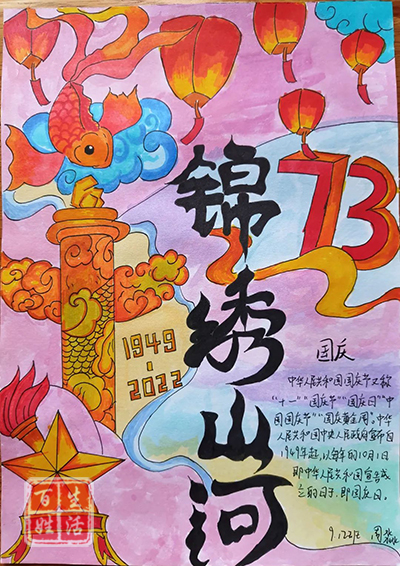 锦绣山河
73
1949
-
2022
国庆
中华人民共和国国庆节又称
“十一”“国庆节”“国庆日”“中
国国庆节”“国庆黄金周”。中华
人民共和国中央人民政府宣布自
1949年起，以每年的10月1日
即中华人民共和国宣告成
立的日子，即国庆日。
周
百姓
生活